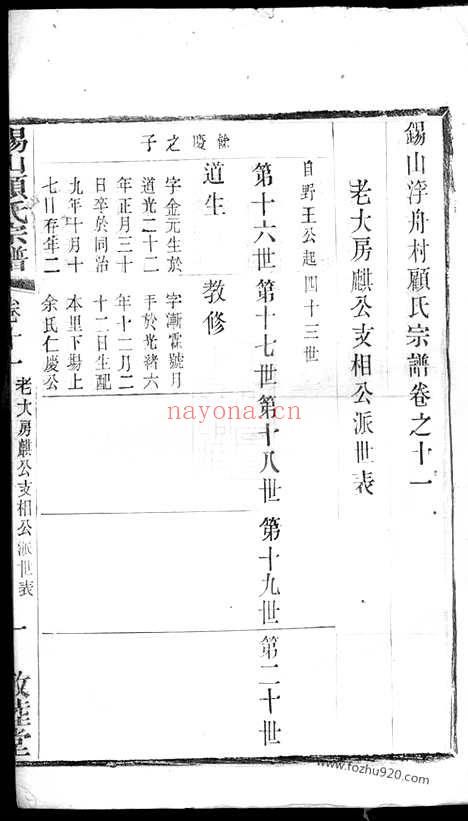 錫山浮舟村顧氏宗譜卷之十一
老大房麒公支相公派世表
自野王公起四十三世
第十六世 第十七世 第十八世 第十九世 第二十世
慶之子
道生
字金元生於
道光二十二
年正月三十
日卒於同治
九年十月十
七日存年二
教修
字漸霍號月
手於光緒六
年十一月二
十二日生配
本里下場上
余氏仁慶公
錫山顧氏宗譜
卷十一
老大房麒公支相公派世表
一
敦睦堂
nayona.cn
www.fozhu920.com